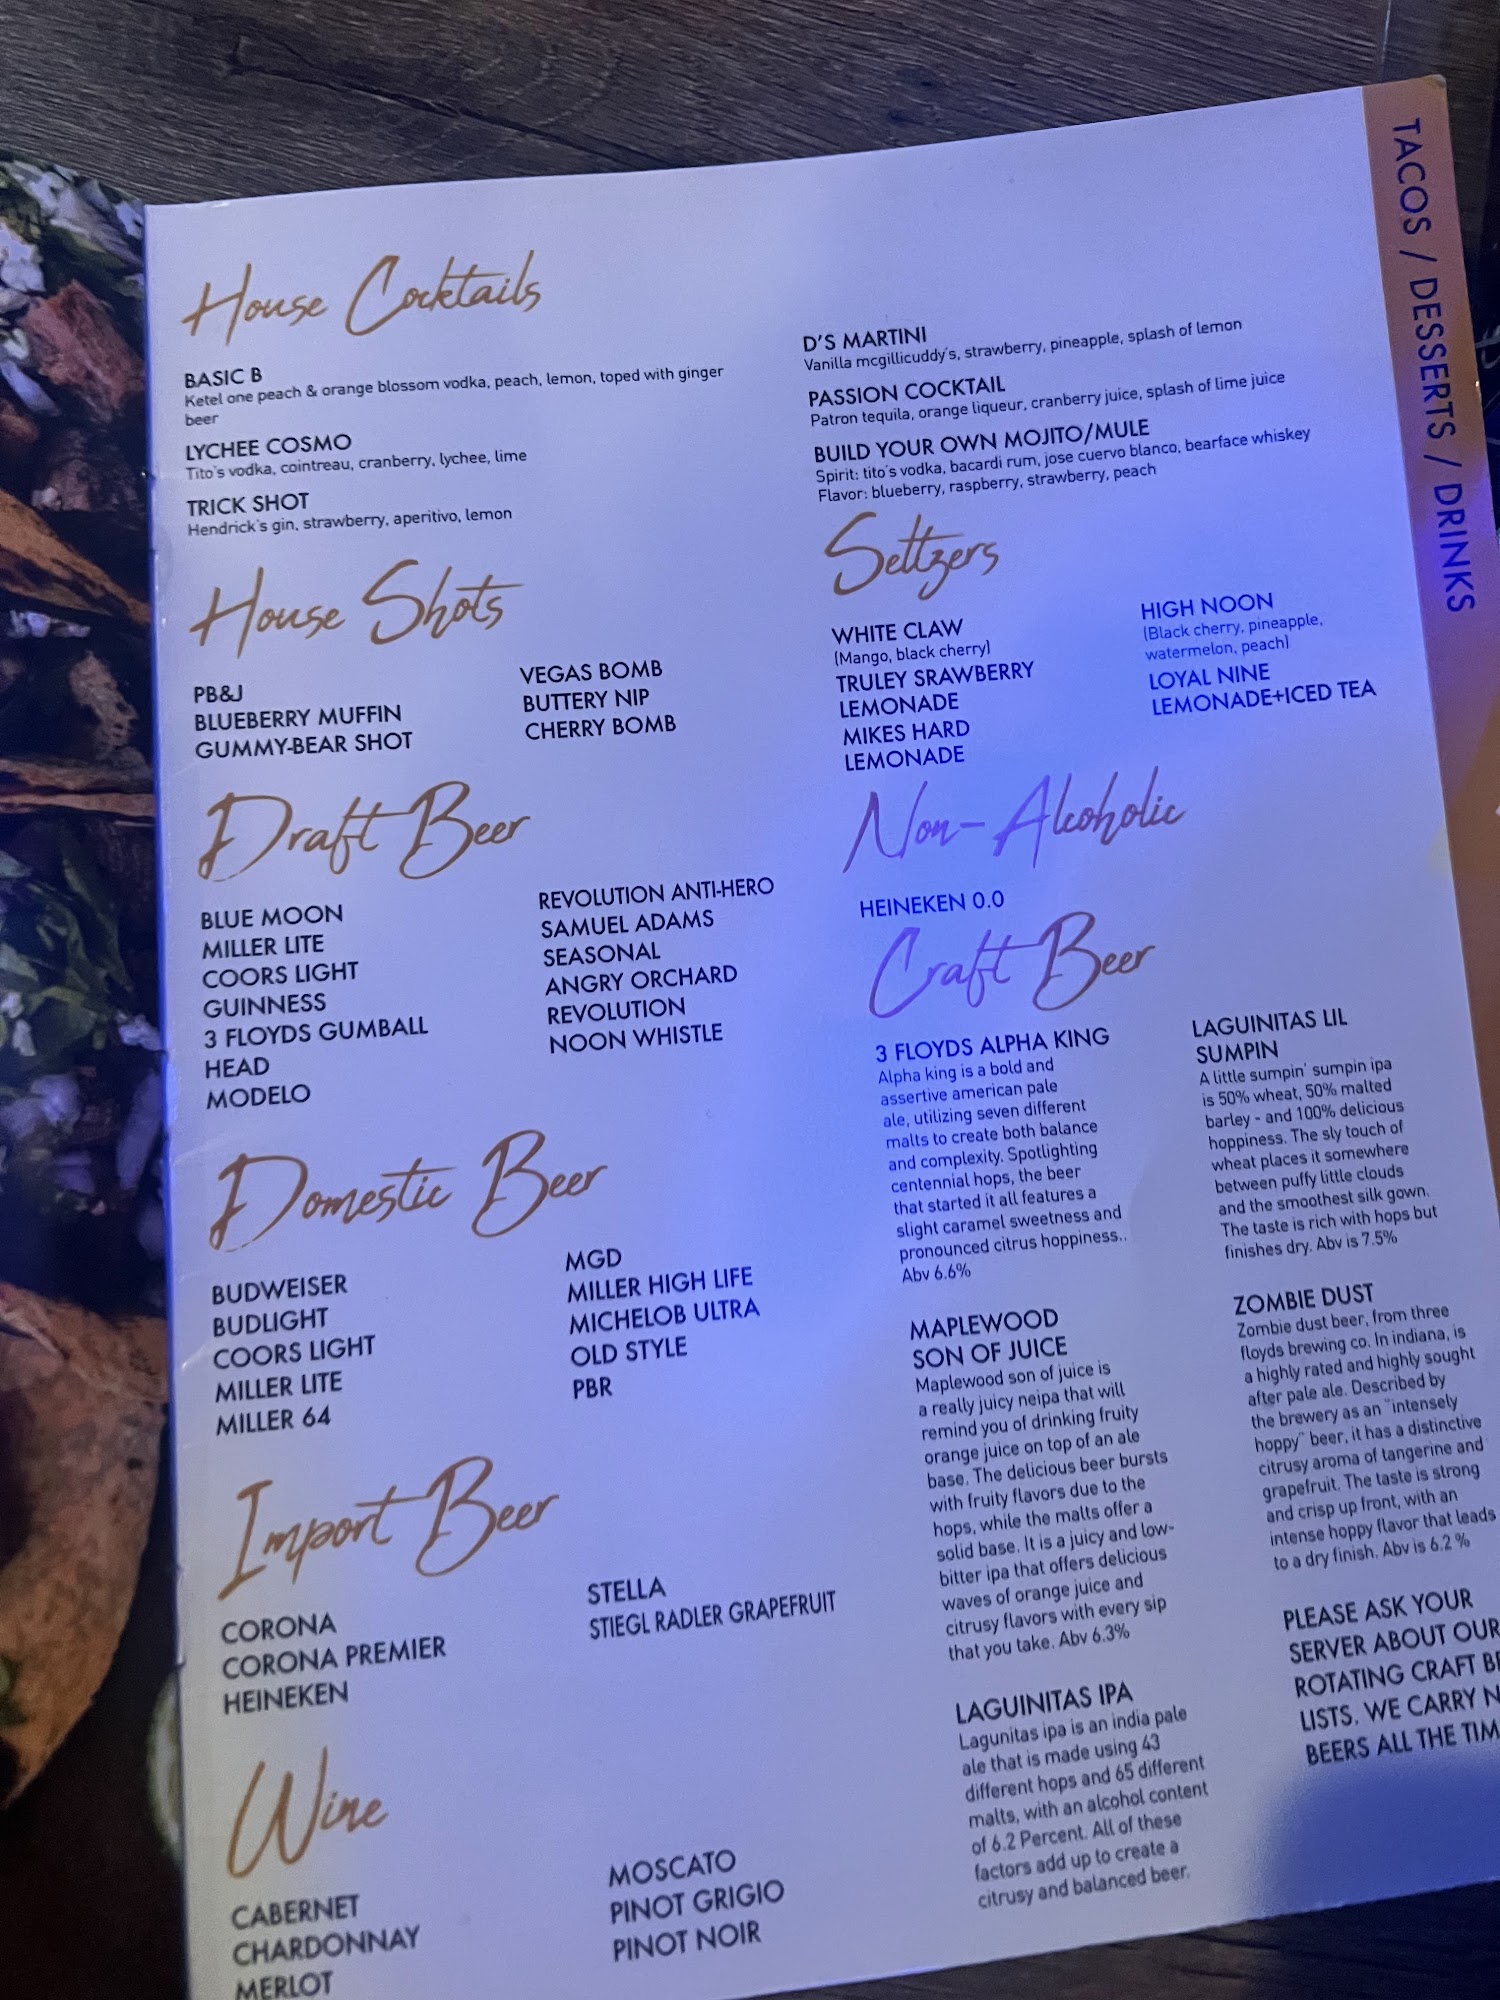 House Cocktails
BASIC B
Ketel one peach & orange blossom vodka, peach, lemon, toped with ginger
beer
LYCHEE COSMO
Tito's vodka, cointreau, cranberry, lychee, lime
TRICK SHOT
Hendrick's gin, strawberry, aperitivo, lemon
House Shots
PB&J
BLUEBERRY MUFFIN
GUMMY-BEAR SHOT
VEGAS BOMB
BUTTERY NIP
CHERRY BOMB
Draft Beer
BLUE MOON
MILLER LITE
COORS LIGHT
GUINNESS
3 FLOYDS GUMBALL
HEAD
MODELO
REVOLUTION ANTI-HERO
SAMUEL ADAMS
SEASONAL
ANGRY ORCHARD
REVOLUTION
NOON WHISTLE
Domestic Beer
BUDWEISER
BUDLIGHT
COORS LIGHT
MILLER LITE
MILLER 64
MGD
MILLER HIGH LIFE
MICHELOB ULTRA
OLD STYLE
PBR
Import Beer
CORONA
CORONA PREMIER
HEINEKEN
STELLA
STIEGL RADLER GRAPEFRUIT
Wine
CABERNET
CHARDONNAY
MERLOT
MOSCATO
PINOT GRIGIO
PINOT NOIR
D'S MARTINI
Vanilla mcgillicuddy's, strawberry, pineapple, splash of lemon
PASSION COCKTAIL
Patron tequila, orange liqueur, cranberry juice, splash of lime juice
BUILD YOUR OWN MOJITO/MULE
Spirit: tito's vodka, bacardi rum, jose cuervo blanco, bearface whiskey
Flavor: blueberry, raspberry, strawberry, peach
Seltzers
WHITE CLAW
(Mango, black cherry)
TRULEY SRAWBERRY
LEMONADE
MIKES HARD
LEMONADE
HIGH NOON
(Black cherry, pineapple,
watermelon, peach)
LOYAL NINE
LEMONADE+ICED TEA
Non-Alcoholic
HEINEKEN 0.0
Craft Beer
3 FLOYDS ALPHA KING
Alpha king is a bold and
assertive american pale
ale, utilizing seven different
malts to create both balance
and complexity. Spotlighting
centennial hops, the beer
that started it all features a
slight caramel sweetness and
pronounced citrus hoppiness..
Abv 6.6%
MAPLEWOOD
SON OF JUICE
Maplewood son of juice is
a really juicy neipa that will
remind you of drinking fruity
orange juice on top of an ale
base. The delicious beer bursts
with fruity flavors due to the
hops, while the malts offer a
solid base. It is a juicy and low-
bitter ipa that offers delicious
waves of orange juice and
citrusy flavors with every sip
that you take. Abv 6.3%
LAGUINITAS IPA
Lagunitas ipa is an india pale
ale that is made using 43
different hops and 65 different
malts, with an alcohol content
of 6.2 Percent. All of these
factors add up to create a
citrusy and balanced beer.
LAGUINITAS LIL
SUMPIN
A little sumpin' sumpin ipa
is 50% wheat, 50% malted
barley - and 100% delicious
hoppiness. The sly touch of
wheat places it somewhere
between puffy little clouds
and the smoothest silk gown.
The taste is rich with hops but
finishes dry. Abv is 7.5%
ZOMBIE DUST
Zombie dust beer, from three
floyds brewing co. In indiana, is
a highly rated and highly sought
after pale ale. Described by
the brewery as an "intensely
hoppy" beer, it has a distinctive
citrusy aroma of tangerine and
grapefruit. The taste is strong
and crisp up front, with an
intense hoppy flavor that leads
to a dry finish. Abv is 6.2 %
PLEASE ASK YOUR
SERVER ABOUT OUR
ROTATING CRAFT
LISTS. WE CARRY
BEERS ALL THE
TACOS / DESSERTS / DRINKS